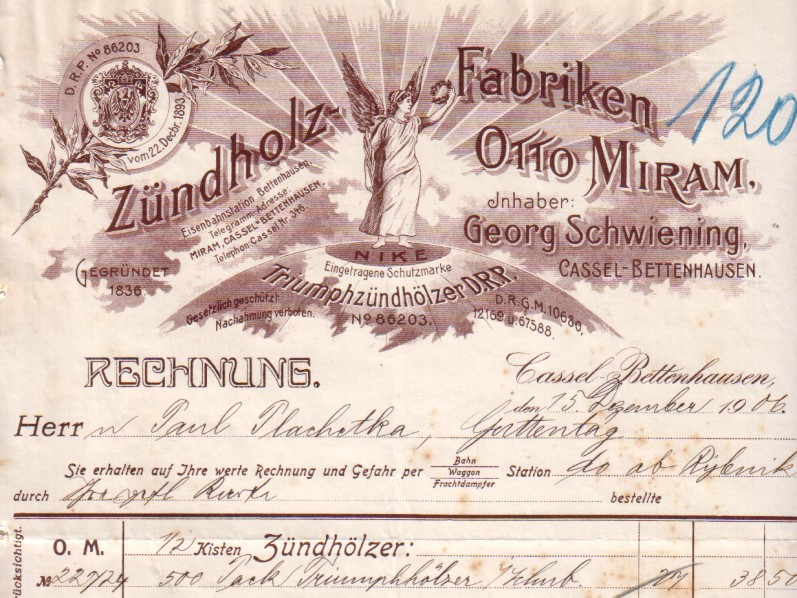 D.R.P. No 86203
vom 22. Decbr. 1893.
Zündholz-
Fabriken
120
Otto Miram,
Jnhaber:
Georg Schwiening,
Cassel-Bettenhausen.
Eisenbahnstation Bettenhausen.
Telegramm-Adresse:
Miram, Cassel-Bettenhausen.
Telephon: Cassel Nr. 346.
Gegründet
1836
NIKE
Eingetragene Schutzmarke
Triumphzündhölzer D.R.P.
No 86203.
Gesetzlich geschützt
Nachahmung verboten.
D.R.G.M. 10680,
12162 u. 67588.
Rechnung.
Cassel-Bettenhausen,
den 15. Dezember 1906.
Herrn Paul Plachetka, Guttentag
Sie erhalten auf Ihre werte Rechnung und Gefahr per Bahn Waggon Frachtdampfer Station do ab Rybnik
durch bestellte
rücksichtigt.
O. M. 1/2 Kisten Zündhölzer:
No 227/24 500 Pack Triumphhölzer 27 38 50